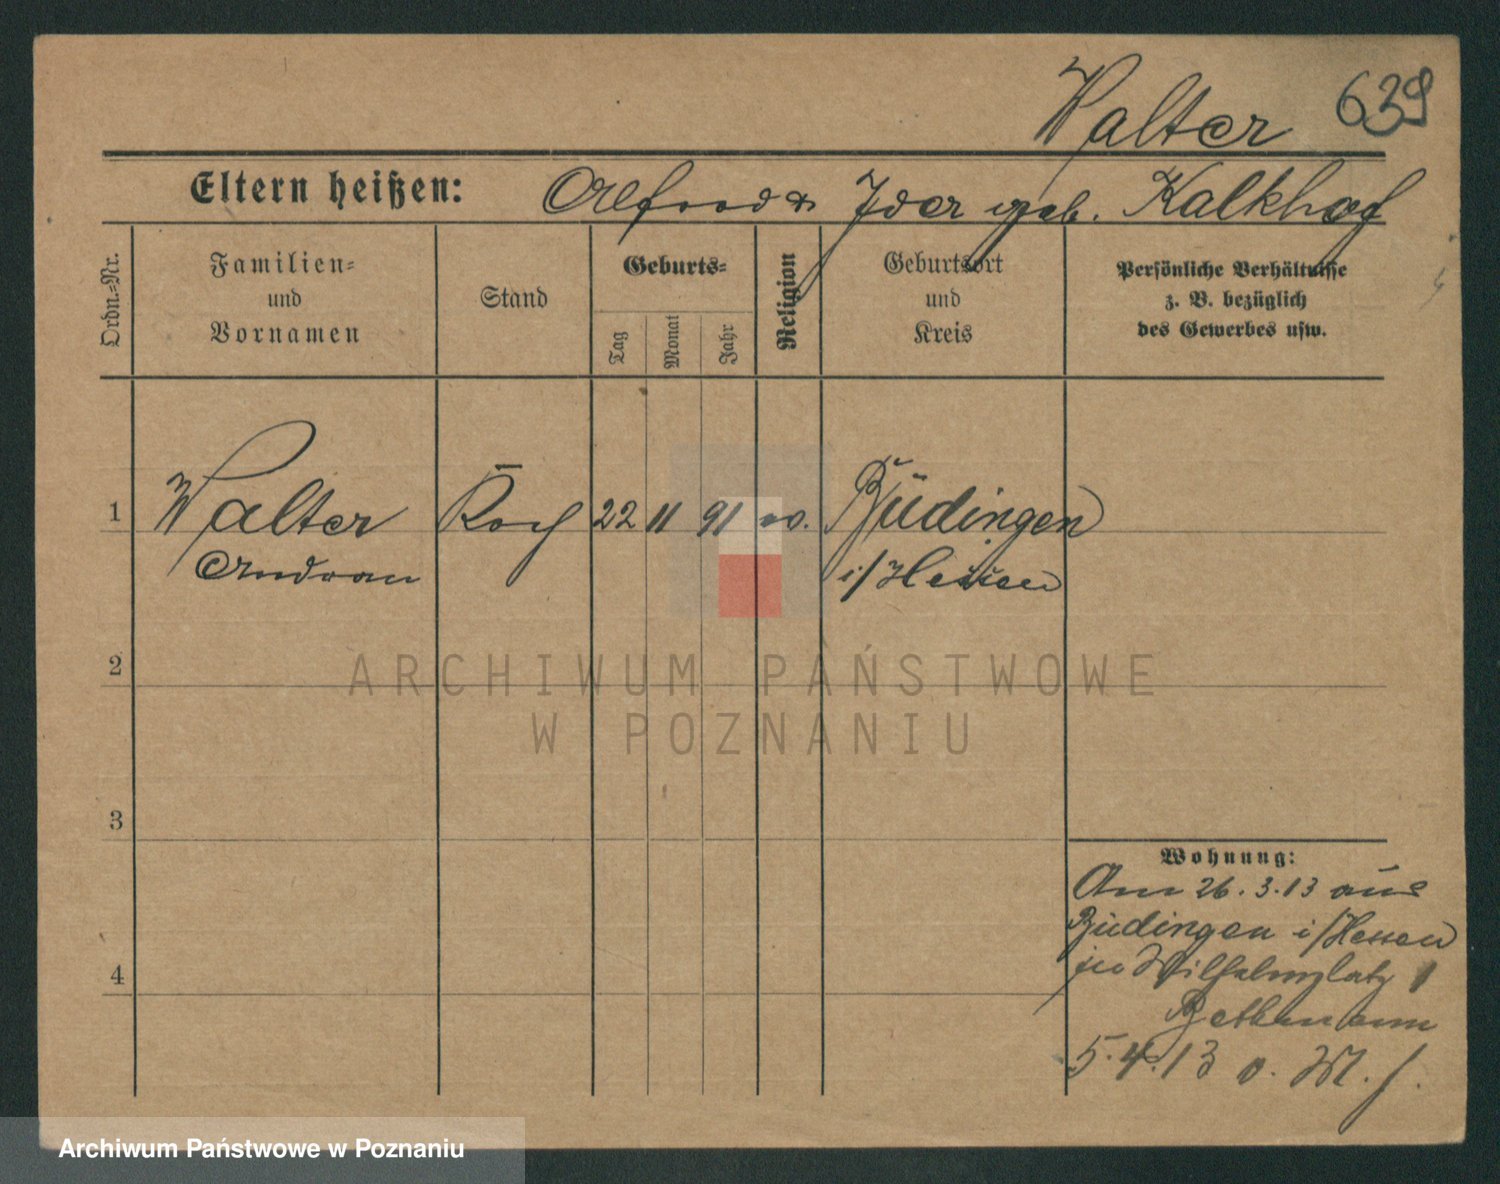 Walter 639
Eltern heißen: Alfred & Ida geb. Kalkhof
Ordn.=Nr.
Familien=
und
Vornamen
Stand
Geburts=
Tag
Monat
Jahr
Religion
Geburtsort
und
Kreis
Persönliche Verhältnisse
z. B. bezüglich
des Gewerbes usw.
1 Walter Koch 22 11 91 ev. Büdingen
i/Hessen
2
3
4
Wohnung:
Am 26.3.13 aus
Büdingen i/Hessen
Wilhelmplatz 1
Bethmann
5.4.13
ARCHIWUM PAŃSTWOWE
W POZNANIU
Archiwum Państwowe w Poznaniu